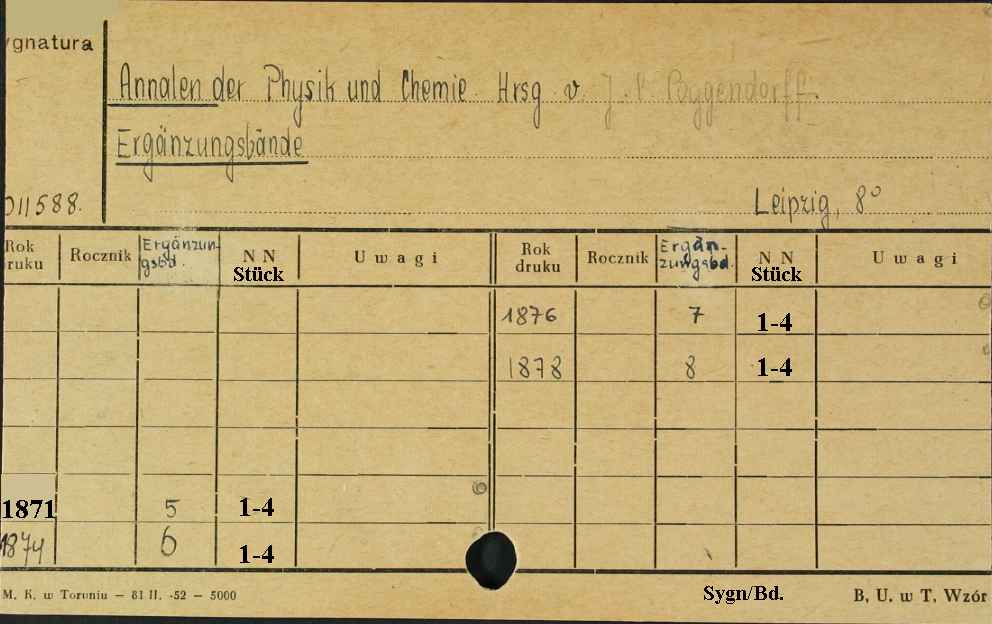 ygnatura
Annalen der Physik und Chemie. Hrsg. v. J. C. Poggendorff.
Ergänzungsbände
011588.
Leipzig, 8°
Rok ruku Rocznik Ergänzungsbd. N N Stück Uwagi Rok druku Rocznik Ergänzungsbd. N N Stück Uwagi
1876 7 1-4
1878 8 1-4
1871 5 1-4
1874 6 1-4
M. K. w Toruniu — 81 II. -52 — 5000 Sygn/Bd. B. U. w T. Wzór